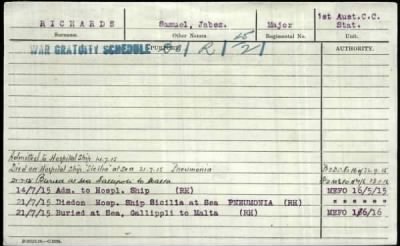 RICHARDS Samuel, Jabez. Major 1st Aust.C.C. Stat.
Surname. Other Names. Regimental No. Unit.
WAR GRATUITY SCHEDULE AUTHORITY.
Admitted to Hospital Ship 14.7.15
Died on Hospital Ship "Sicilia" at Sea 21.7.15 Pneumonia
21.7.15 Buried at sea Gallipoli to Malta
14/7/15 Adm. to Hospl. Ship (RH) MEFO 16/5/15
21/7/15 Diedon Hosp. Ship Sicilia at Sea PNEUMONIA (RH) " " " " " "
21/7/15 Buried at Sea, Gallippli to Malta (RH) MEFO